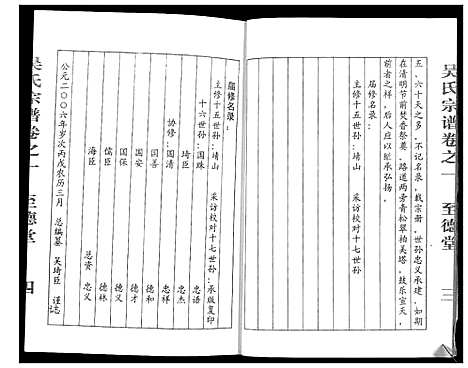 吴氏宗谱卷之一 至德堂 三
五、六十天之多，不记名录，载宗册，世孙忠义承建，如期
在清明节前焚香祭奠，路道两旁青松翠柏美塔，鼓乐宣天，
前者之样，后人应以继承弘扬。
届修名录：
主修十五世孙：靖山 采访校对十七世孙
届修名录：
主修十五世孙：靖山 采访校对十七世孙：承版复印
十六世孙：国珠 忠语
琦臣 忠杰
协修：国清 忠祥
国善 德和
国安 德才
国保 德义
儒臣 德林
海臣 总资 忠义
公元二〇〇六年岁次丙戌农历三月 总编纂 吴琦臣 谨志
吴氏宗谱卷之一 至德堂 四